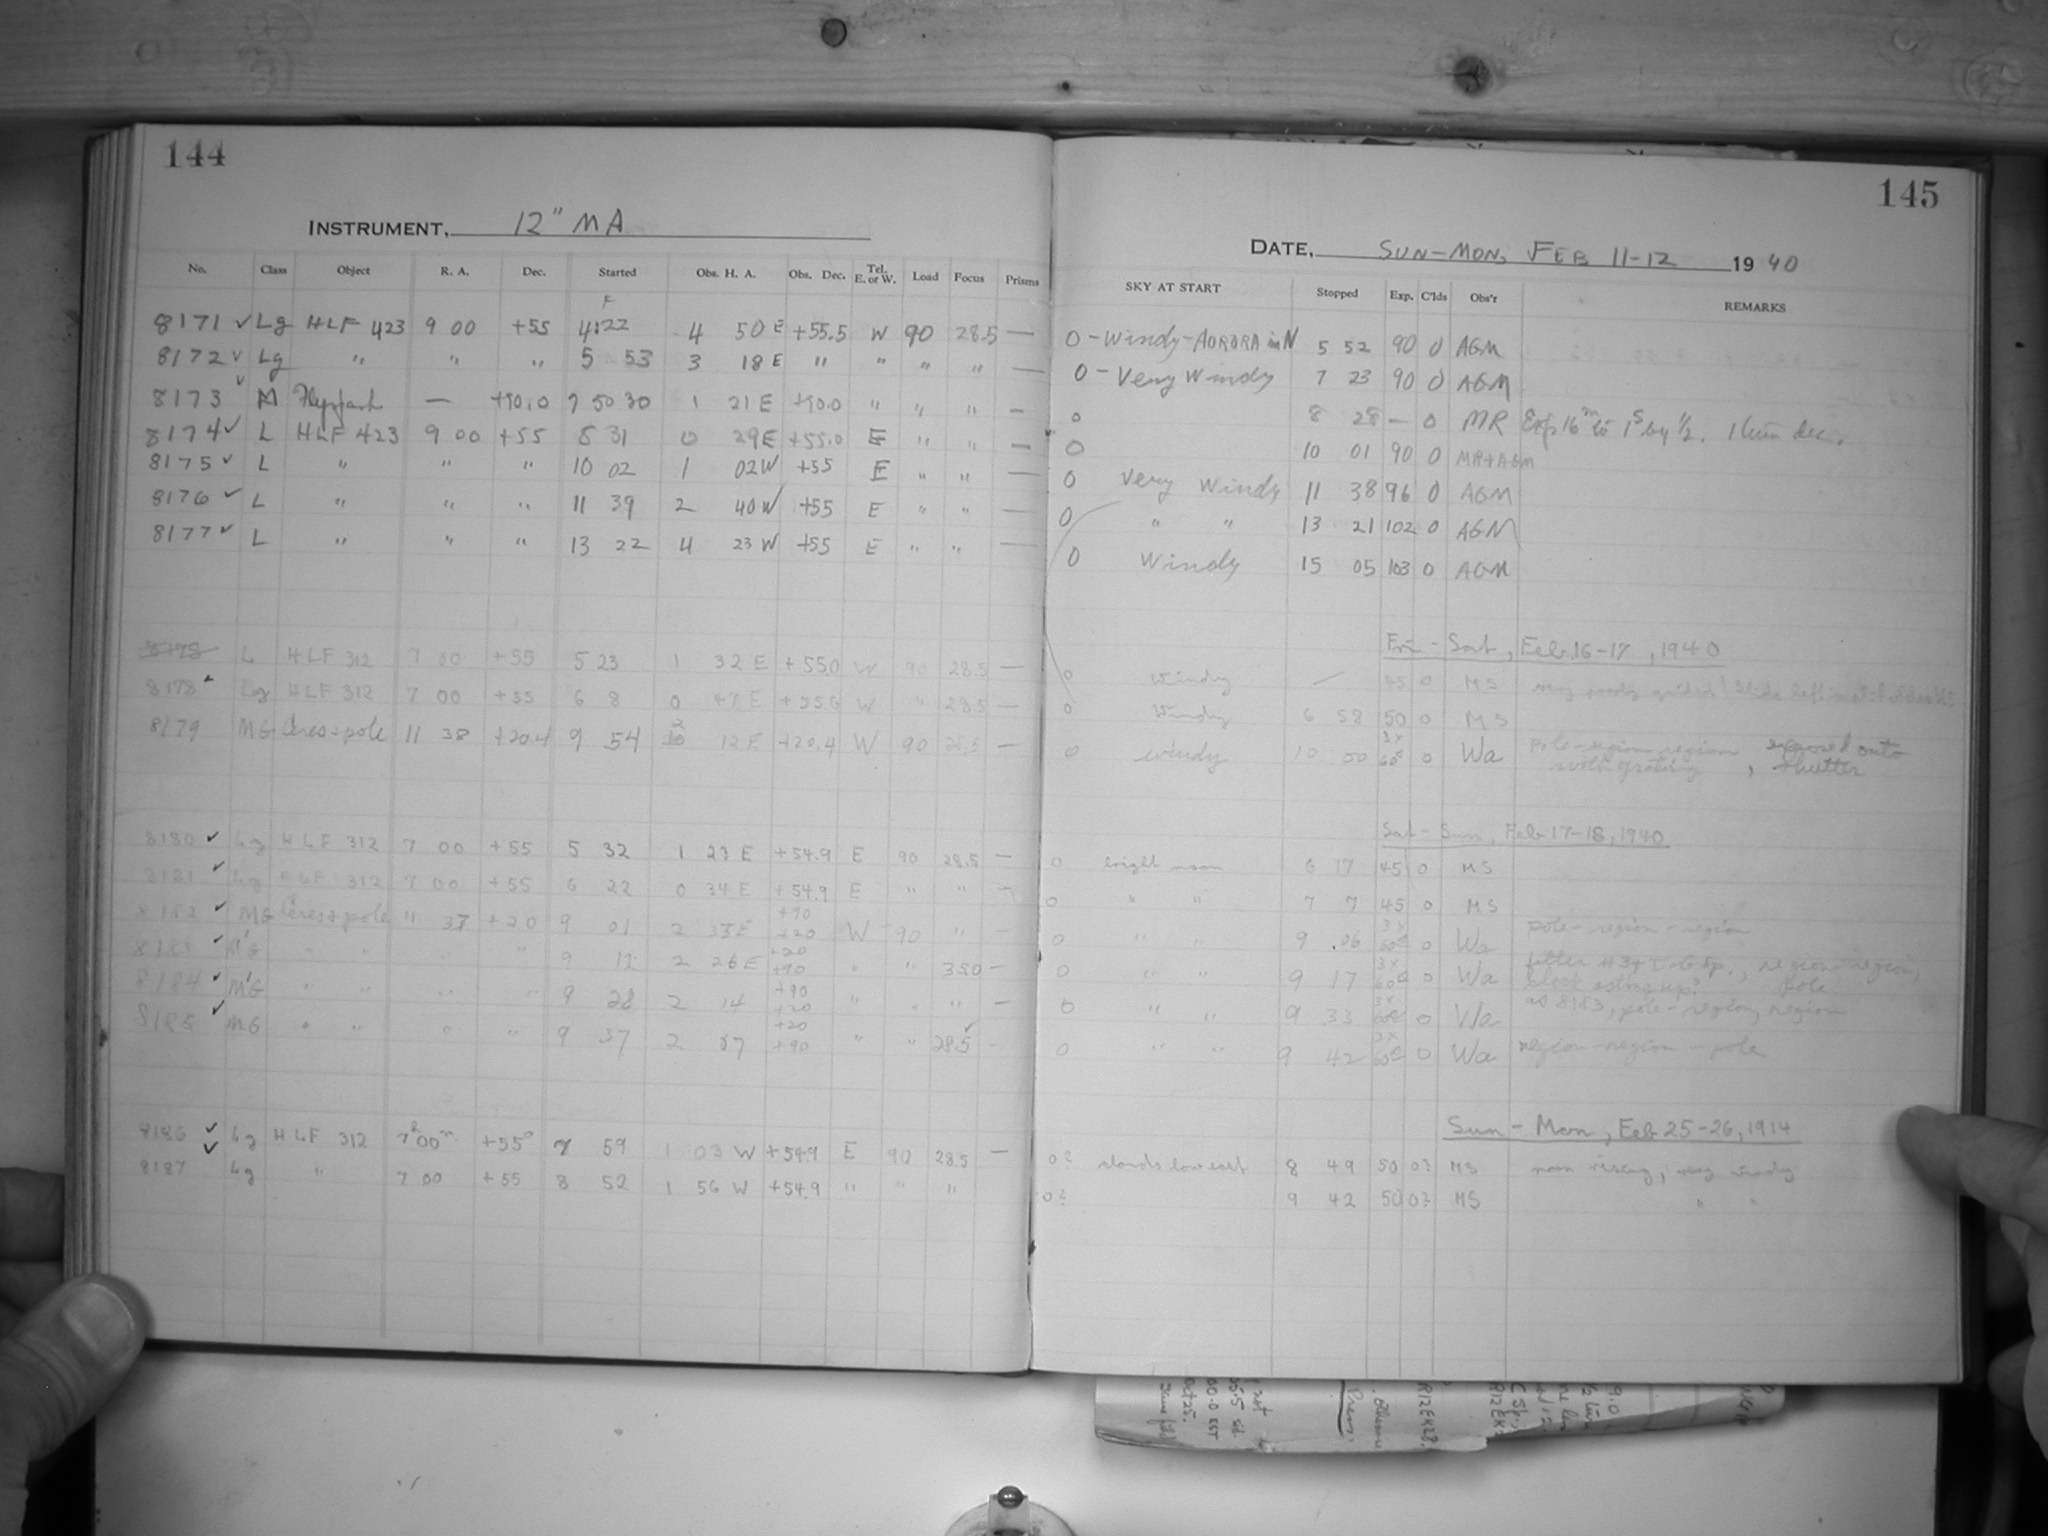 144
INSTRUMENT, 12" MA
No. Class Object R. A. Dec. Started Obs. H. A. Obs. Dec. Tel. E. or W. Load Focus Prisms
8171 ✓ Lg HLF 423 9 00 +55 4 22 4 50 E +55.5 W 90 28.5 —
8172 ✓ Lg " " " 5 53 3 18 E " " " " —
8173 ✓ M — +90.0 7 50 30 1 21 E +90.0 " " " —
8174 ✓ L HLF 423 9 00 +55 8 31 0 29 E +55.0 E " " —
8175 ✓ L " " " 10 02 1 02 W +55 E " " —
8176 ✓ L " " " 11 39 2 40 W +55 E " " —
8177 ✓ L " " " 13 22 4 23 W +55 E " " —
8178 L HLF 312 7 00 +55 5 23 1 32 E +55.0 W 90 28.5 —
8178 Lg HLF 312 7 00 +55 6 8 0 47 E W " 28.5 —
8179 MG Ceres + pole 11 38 +20.4 9 54 2 12 E +20.4 W 90 28.5 —
8180 ✓ Lg HLF 312 7 00 +55 5 32 1 23 E +54.9 E 90 28.5 —
8181 ✓ Lg HLF 312 7 00 +55 6 22 0 34 E +54.9 E " " —
8182 ✓ MG Ceres + pole " 37 +20 9 01 2 E +90 +20 W 90 " —
8183 ✓ M'G " " " " " 9 12 2 26 E +20 +90 " " 35.0 —
8184 ✓ M'G " " " " 9 28 2 14 +90 +20 " " " —
8185 ✓ MG " " " " 9 37 2 07 +20 +90 " " 28.5 ✓ —
8186 ✓ Lg HLF 312 7h 00m +55° 7 59 1 03 W +54.9 E 90 28.5 —
8187 ✓ Lg " 7 00 +55 8 52 1 56 W +54.9 " " "
145
DATE, SUN-MON, FEB 11-12 1940
SKY AT START Stopped Exp. C'lds Obs'r REMARKS
0 - Windy - AURORA in N 5 52 90 0 AGM
0 - Very Windy 7 23 90 0 AGM
0 8 28 — 0 MR Exp 16m to 1s by ½. 1 turn dec.
0 10 01 90 0 MR+AGM
0 Very Windy 11 38 96 0 AGM
0 " " 13 21 102 0 AGM
0 Windy 15 05 103 0 AGM
Fri - Sat, Feb. 16-17, 1940
0 windy — 45 0 MS
0 windy 6 58 50 0 MS
0 windy 10 00 3x 60s 0 Wa pole-region-region, exposed onto
with grating, shutter
Sat - Sun, Feb 17-18, 1940
0 bright moon 6 17 45 0 MS
0 " " 7 7 45 0 MS
0 " " 9 06 3x 60s 0 Wa pole-region-region
0 " " 9 17 3x 60s 0 Wa filter region-region,
pole
0 " " 9 33 3x 60s 0 Wa as 8183, pole-region, region
0 " " 9 42 3x 60s 0 Wa region-region-pole
Sun - Mon, Feb 25-26, 1914
0? clouds low east 8 49 50 0? MS moon rising, very windy
0? 9 42 50 0? MS " "